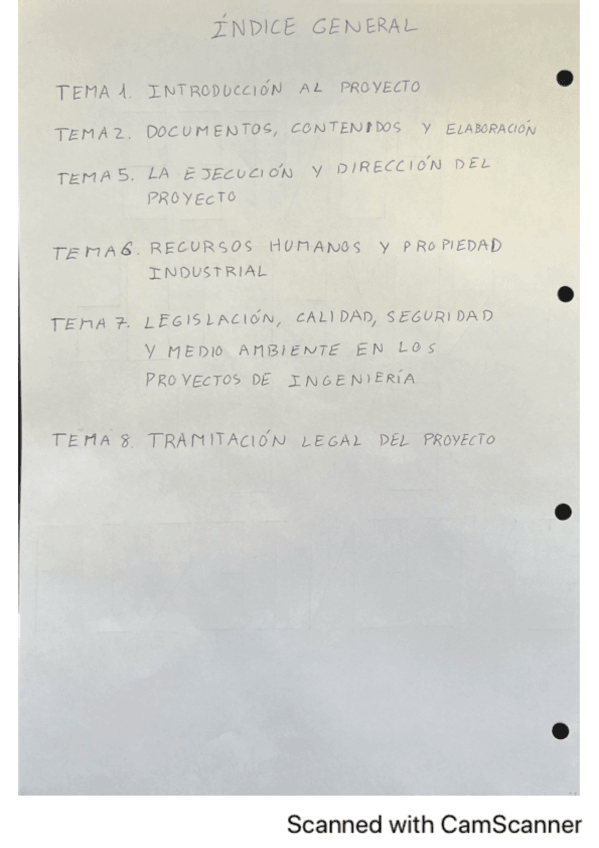 ÍNDICE GENERAL
TEMA 1. INTRODUCCIÓN AL PROYECTO
TEMA 2. DOCUMENTOS, CONTENIDOS Y ELABORACIÓN
TEMA 5. LA EJECUCIÓN Y DIRECCIÓN DEL
PROYECTO
TEMA 6. RECURSOS HUMANOS Y PROPIEDAD
INDUSTRIAL
TEMA 7. LEGISLACIÓN, CALIDAD, SEGURIDAD
Y MEDIO AMBIENTE EN LOS
PROYECTOS DE INGENIERÍA
TEMA 8. TRAMITACIÓN LEGAL DEL PROYECTO
Scanned with CamScanner